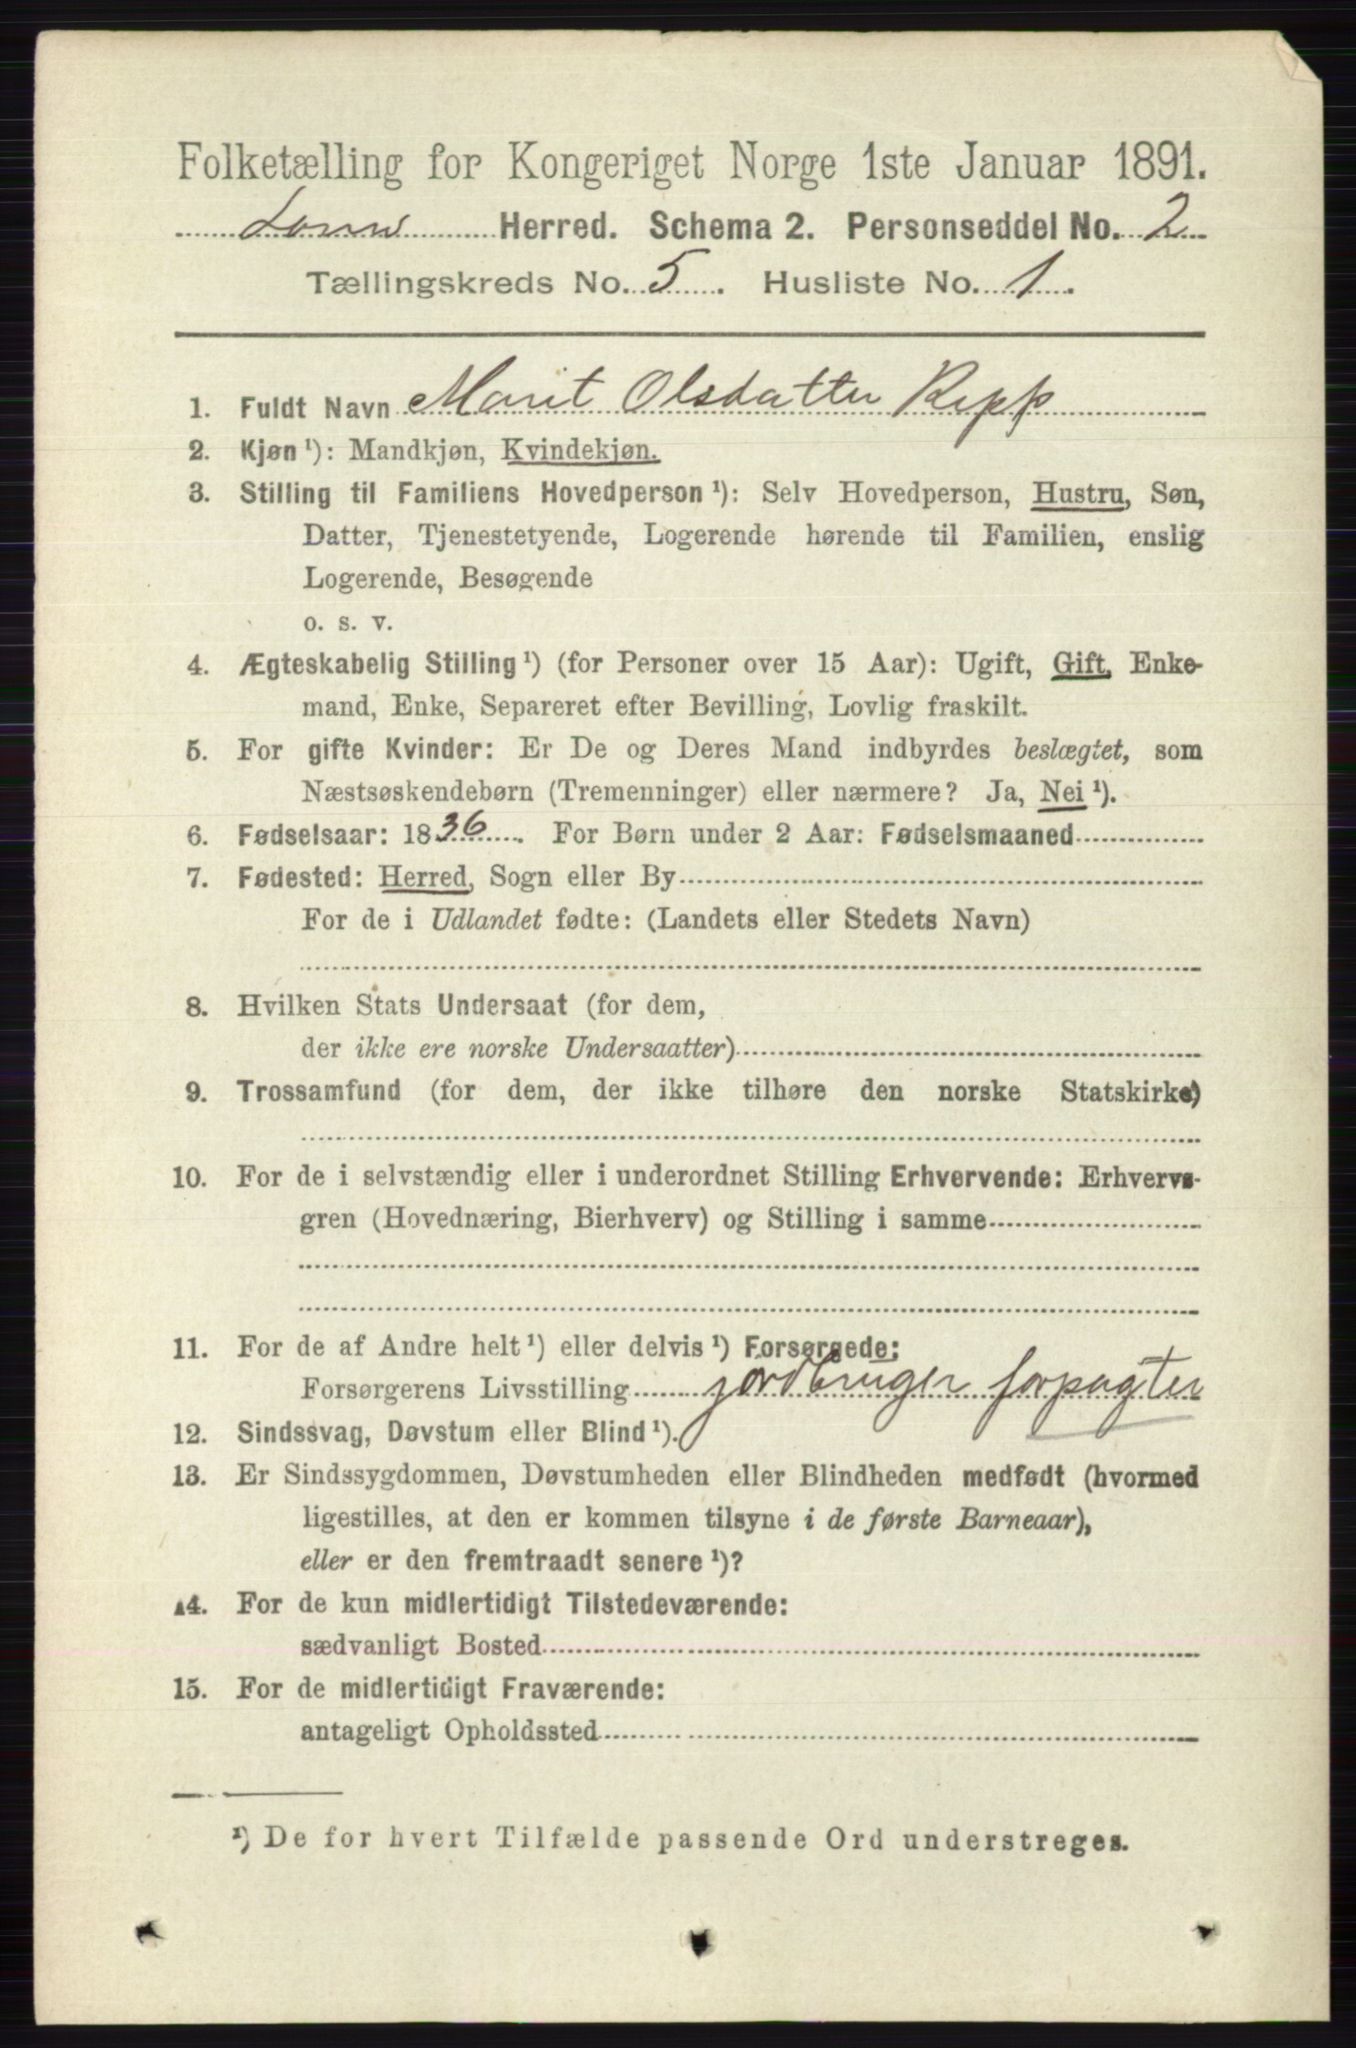 Folketælling for Kongeriget Norge 1ste Januar 1891.
Lom Herred. Schema 2. Personseddel No. 2
Tællingskreds No. 5. Husliste No. 1.
1. Fuldt Navn Marit Olsdatter Repp
2. Kjøn ¹): Mandkjøn, Kvindekjøn.
3. Stilling til Familiens Hovedperson ¹): Selv Hovedperson, Hustru, Søn,
Datter, Tjenestetyende, Logerende hørende til Familien, enslig
Logerende, Besøgende
o. s. v.
4. Ægteskabelig Stilling ¹) (for Personer over 15 Aar): Ugift, Gift, Enke-
mand, Enke, Separeret efter Bevilling, Lovlig fraskilt.
5. For gifte Kvinder: Er De og Deres Mand indbyrdes beslægtet, som
Næstsøskendebørn (Tremenninger) eller nærmere? Ja, Nei ¹).
6. Fødselsaar: 1836. For Børn under 2 Aar: Fødselsmaaned
7. Fødested: Herred, Sogn eller By
For de i Udlandet fødte: (Landets eller Stedets Navn)
8. Hvilken Stats Undersaat (for dem,
der ikke ere norske Undersaatter)
9. Trossamfund (for dem, der ikke tilhøre den norske Statskirke)
10. For de i selvstændig eller i underordnet Stilling Erhvervende: Erhvervs-
gren (Hovednæring, Bierhverv) og Stilling i samme
11. For de af Andre helt ¹) eller delvis ¹) Forsørgede:
Forsørgerens Livsstilling jordbruger forpagter
12. Sindssvag, Døvstum eller Blind ¹).
13. Er Sindssygdommen, Døvstumheden eller Blindheden medfødt (hvormed
ligestilles, at den er kommen tilsyne i de første Barneaar),
eller er den fremtraadt senere ¹)?
14. For de kun midlertidigt Tilstedeværende:
sædvanligt Bosted
15. For de midlertidigt Fraværende:
antageligt Opholdssted
¹) De for hvert Tilfælde passende Ord understreges.